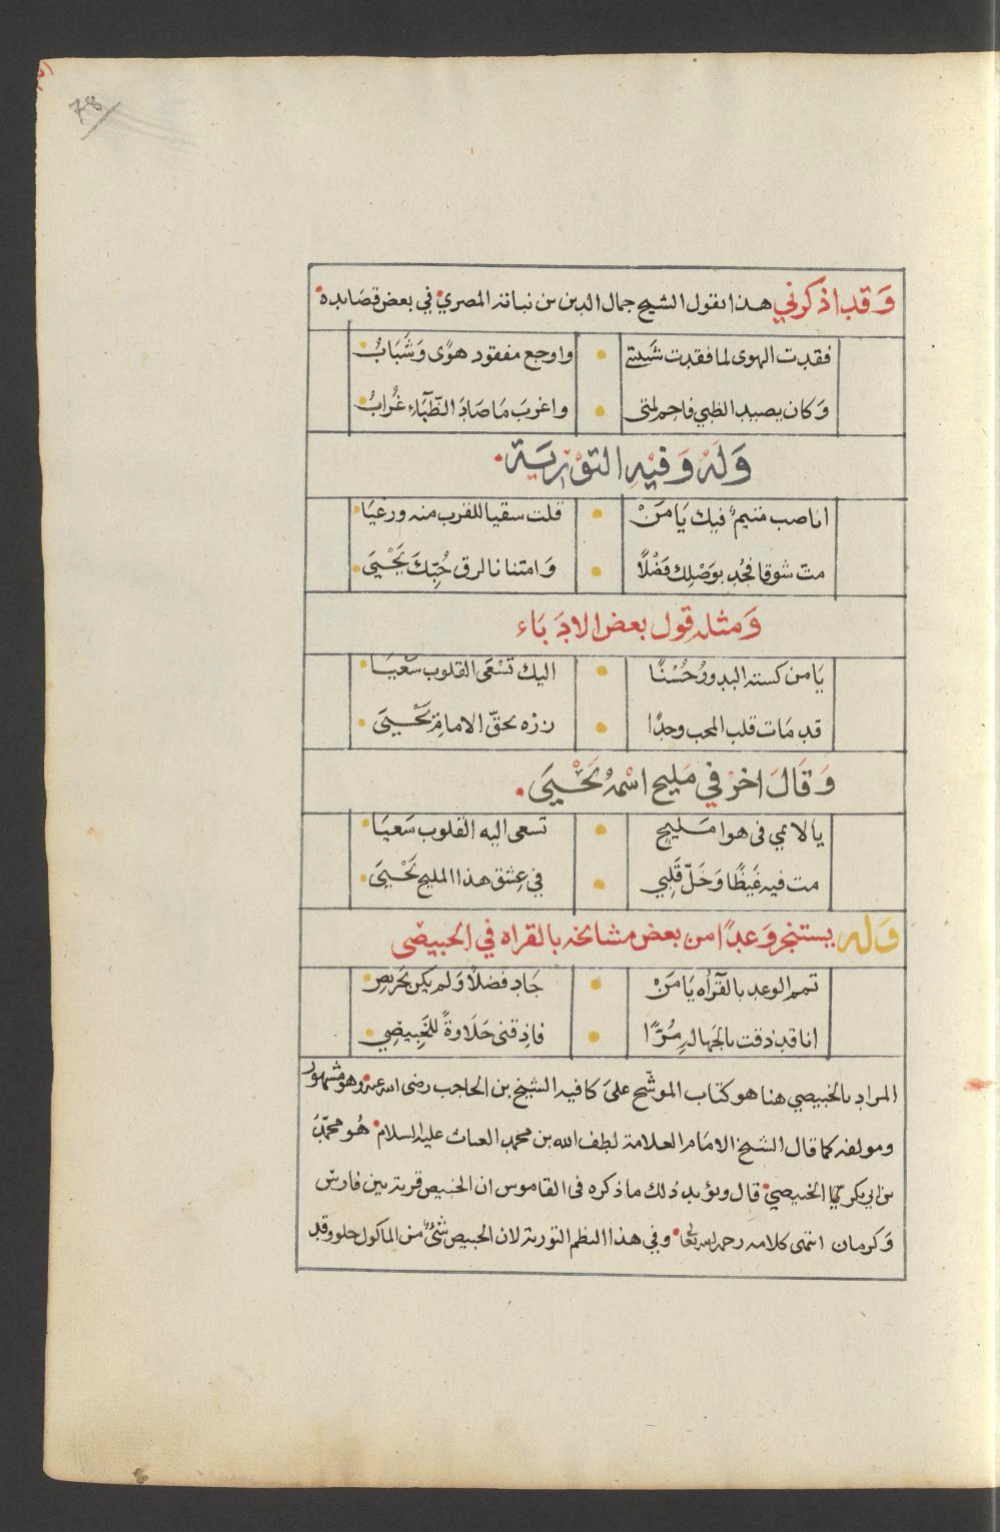 78
وَقد اذكرني هذا بقول الشيخ جمال الدين بن نباتة المصري في بعض قصايده
فقدت الهوى لما فقدت شَبيبتي واوجع مفقود هوًى وَشَبَابُ
وَكان يصيد الظبي فاحم لمتى واغربَ مَا صَادَ الظّبَاء غُرابُ
وَلَهُ وَفيْهِ التوْرِيَة
انا صب متيمٌ فيك يَا مَنْ قلت سقيا للقرب منه ورعيَا
متّ شوقا فجُد بوَصْلِك فَضْلًا وَامتنانا لرق حُبّكَ يَحْيَى
وَمثله قول بعض الادَبَاء
يَا من كسته البدورُ حُسْنًا اليك تسْعَى القلوب سَعْيَا
قد مَات قلب المحب وجدًا زره بحقّ الامامة يَحْيَى
وَقَالَ اخرْ في مَليح اسْمُهُ يَحْيَى
يا لائمي في هوا مَليح تسعى اليه القلوب سَعيَا
مت فيه غَيظًا وَخَلّ قَلبي في عِشق هذا المليح يَحْيَى
وَله يستنجز وَعدًا من بعض مشائخه بالقراه في الخبيصي
تمم الوعد بالقرأه يَا مَنْ جَاد فضلًا وَلم يكن بحَريصِ
انا قد ذقت بالجهاله مُرًّا فاذقنى حَلَاوةً للخَبيصِي
المراد بالخبيصي هنا هو كتاب الموشّح علىَ كافية الشيخ بن الحاجب رضى الله عنه وهو مشهور
ومولفه كما قال الشيخ الامَام العلامة لطف الله بن محمد الغياث عليه السلام هُو محمّدُ
بن ابي بكر الخبيصي قال ويؤيد ذلك ما ذكره فى القاموس ان الخبيص قرية بين فارسَ
وَكرمان انتهى كلامه رحمه الله تعا وفي هذا النظم التورية لان الخبيص شئٌ من الماكول حلو وقد